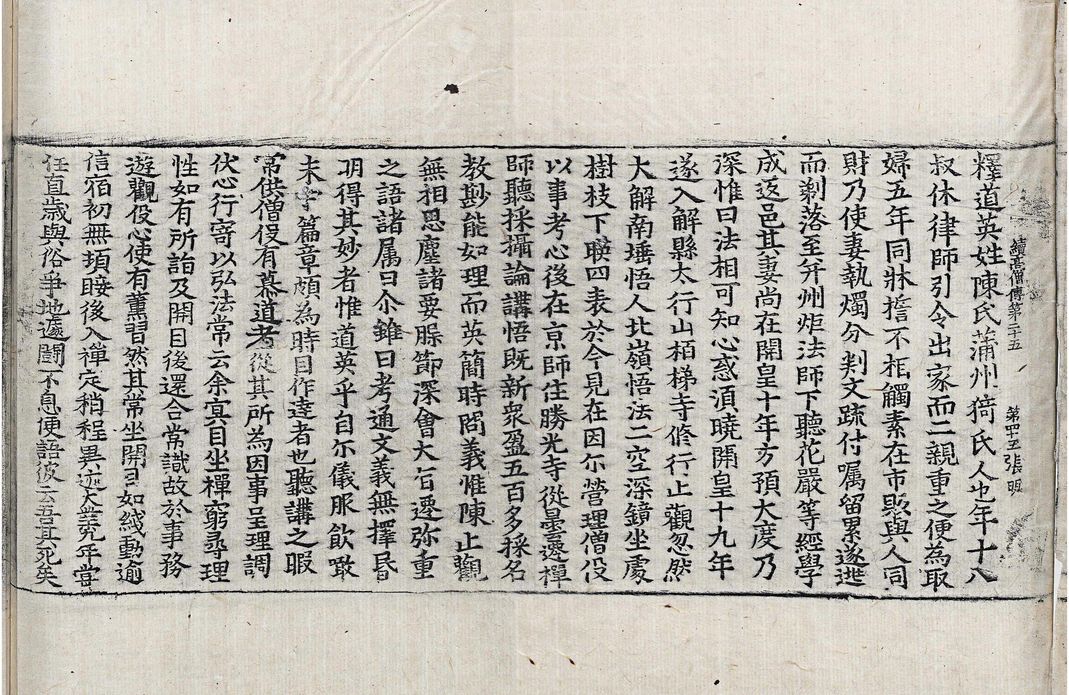 釋道英姓陳氏蒲州猗氏人也年十八
續高僧傳第二十五 第四十五張 明
叔休律師引令出家而二親重之便為取
婦五年同牀誓不相觸素在市販與人同
財乃使妻執燭分判文疏付囑留累遂逃
而剃落至幷州炬法師下聽花嚴等經學
成返邑其妻尚在開皇十年方預大度乃
深惟曰法相可知心惑須曉開皇十九年
遂入解縣太行山栢梯寺修行止觀忽然
大解南埵悟人北嶺悟法二空深鏡坐處
樹枝下映四表於今見在因尒營理僧伇
以事考心後在京師住勝光寺從曇遷禪
師聽採攝論講悟既新衆盈五百多採名
教尠能如理而英簡時問義惟陳止觀
無相思塵諸要脲節深會大旨遷弥重
之語諸属曰尒雖曰考通文義無擇昏
明得其妙者惟道英乎自尒儀服飲噉
未守篇章頗為時目作達者也聽講之暇
常供僧伇有慕道者從其所為因事呈理調
伏心行寄以弘法常云余冥目坐禪窮尋理
性如有所詣及開目後還合常識故於事務
遊觀伇心使有薰習然其常坐開目如線動逾
信宿初無頃睫後入禪定稍程異迹大業九年當
任直歲與俗爭地遽鬪不息便語彼云吾其死矣